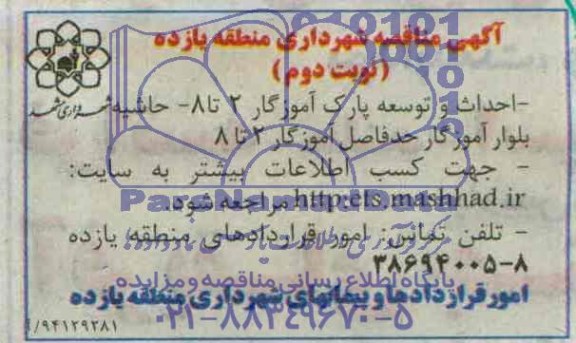 آگهی مناقصه شهرداری منطقه یازده
(نوبت دوم)
-احداث و توسعه پارک آموزگار ۲ تا ۸- حاشیه
بلوار آموزگار حدفاصل آموزگار ۲ تا ۸
- جهت کسب اطلاعات بیشتر به سایت:
http:ets.mashhad.ir مراجعه شود.
- تلفن تماس: امور قراردادهای منطقه یازده
۳۸۶۹۴۰۰۵-۸
امور قراردادها و پیمانهای شهرداری منطقه یازده
شهرداری مشهد
۹۴۱۲۹۲۸۱/
ParsNamadData
پایگاه اطلاع رسانی مناقصه و مزایده
۰۲۱-۸۸۳۴۹۶۷۰-۵